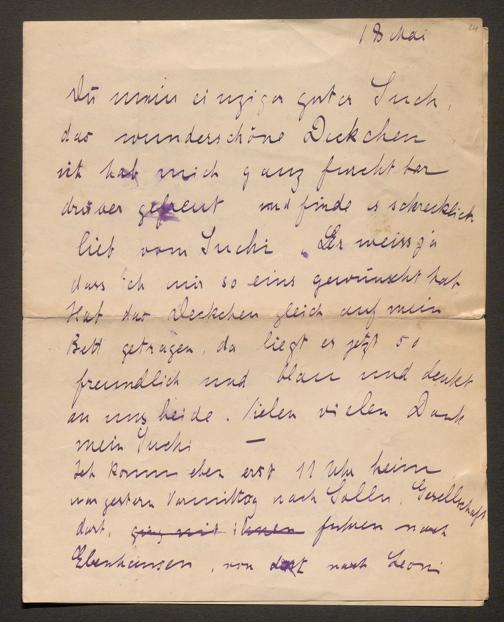 18 Mai
Du mein einziger guter Such,
das wunderschöne Deckchen
ich hab mich ganz furchtbar
drüber gefreut und finde es schrecklich
lieb vom Suchi. Er weiss ja
dass ich mir so eins gewünscht hab
Hat das Deckchen gleich auf mein
Bett getragen, da liegt es jetzt so
freundlich und blau und denkt
an uns beide. Vielen vielen Dank
mein Suchi —
Ich komm eben erst 11 Uhr heim
war gestern Vormittag nach Solln, Gesellschaft
dort, ging mit ihnen fuhren nach
Ebenhausen, von dort nach Leoni